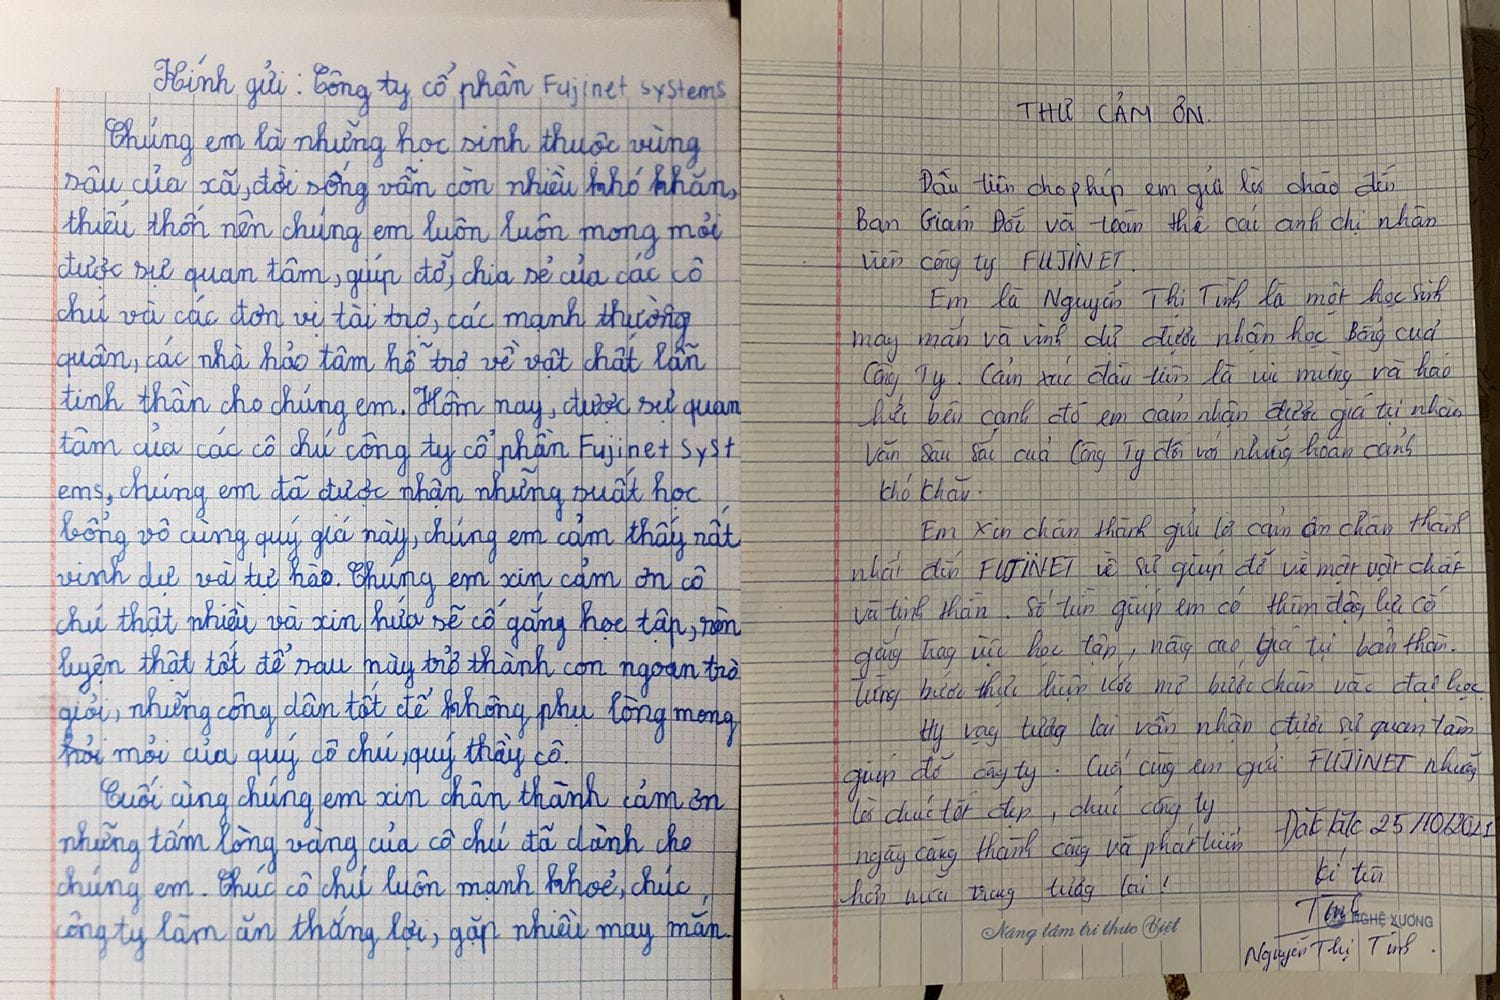 Kính gửi: Công ty cổ phần Fujinet systems
Chúng em là những học sinh thuộc vùng
sâu của xã, đời sống vẫn còn nhiều khó khăn,
thiếu thốn nên chúng em luôn luôn mong mỏi
được sự quan tâm, giúp đỡ, chia sẻ của các cô
chú và các đơn vị tài trợ, các mạnh thường
quân, các nhà hảo tâm hỗ trợ về vật chất lẫn
tinh thần cho chúng em. Hôm nay, được sự quan
tâm của các cô chú công ty cổ phần Fujinet syst
ems, chúng em đã được nhận những suất học
bổng vô cùng quý giá này, chúng em cảm thấy rất
vinh dự và tự hào. Chúng em xin cảm ơn cô
chú thật nhiều và xin hứa sẽ cố gắng học tập, rèn
luyện thật tốt để sau này trở thành con ngoan trò
giỏi, những công dân tốt để không phụ lòng mong
mỏi của quý cô chú, quý thầy cô.
Cuối cùng chúng em xin chân thành cảm ơn
những tấm lòng vàng của cô chú đã dành cho
chúng em. Chúc cô chú luôn mạnh khoẻ, chúc
công ty làm ăn thắng lợi, gặp nhiều may mắn.
THƯ CẢM ƠN.
Đầu tiên cho phép em gửi lời chào đến
Ban Giám Đốc và toàn thể các anh chị nhân
viên công ty FUJINET.
Em là Nguyễn Thị Tình là một học sinh
may mắn và vinh dự được nhận học Bổng của
Công Ty. Cảm xúc đầu tiên là vui mừng và háo
hức bên cạnh đó em cảm nhận được giá trị nhân
văn sâu sắc của Công Ty đối với những hoàn cảnh
khó khăn.
Em xin chân thành gửi lời cảm ơn chân thành
nhất đến FUJINET về sự giúp đỡ về mặt vật chất
và tinh thần. Số tiền giúp em có thêm động lực cố
gắng trong việc học tập, nâng cao giá trị bản thân.
từng bước thực hiện ước mơ bước chân vào đại học
Hy vọng tương lai vẫn nhận được sự quan tâm
giúp đỡ công ty. Cuối cùng em gửi FUJINET những
lời chúc tốt đẹp, chúc công ty
ngày càng thành công và phát triển
hơn nữa trong tương lai!
Đăk Lăk 25/10/2021
Kí tên
Tình
Nguyễn Thị Tình.
Nâng tầm tri thức Việt
NGHỆ XƯƠNG